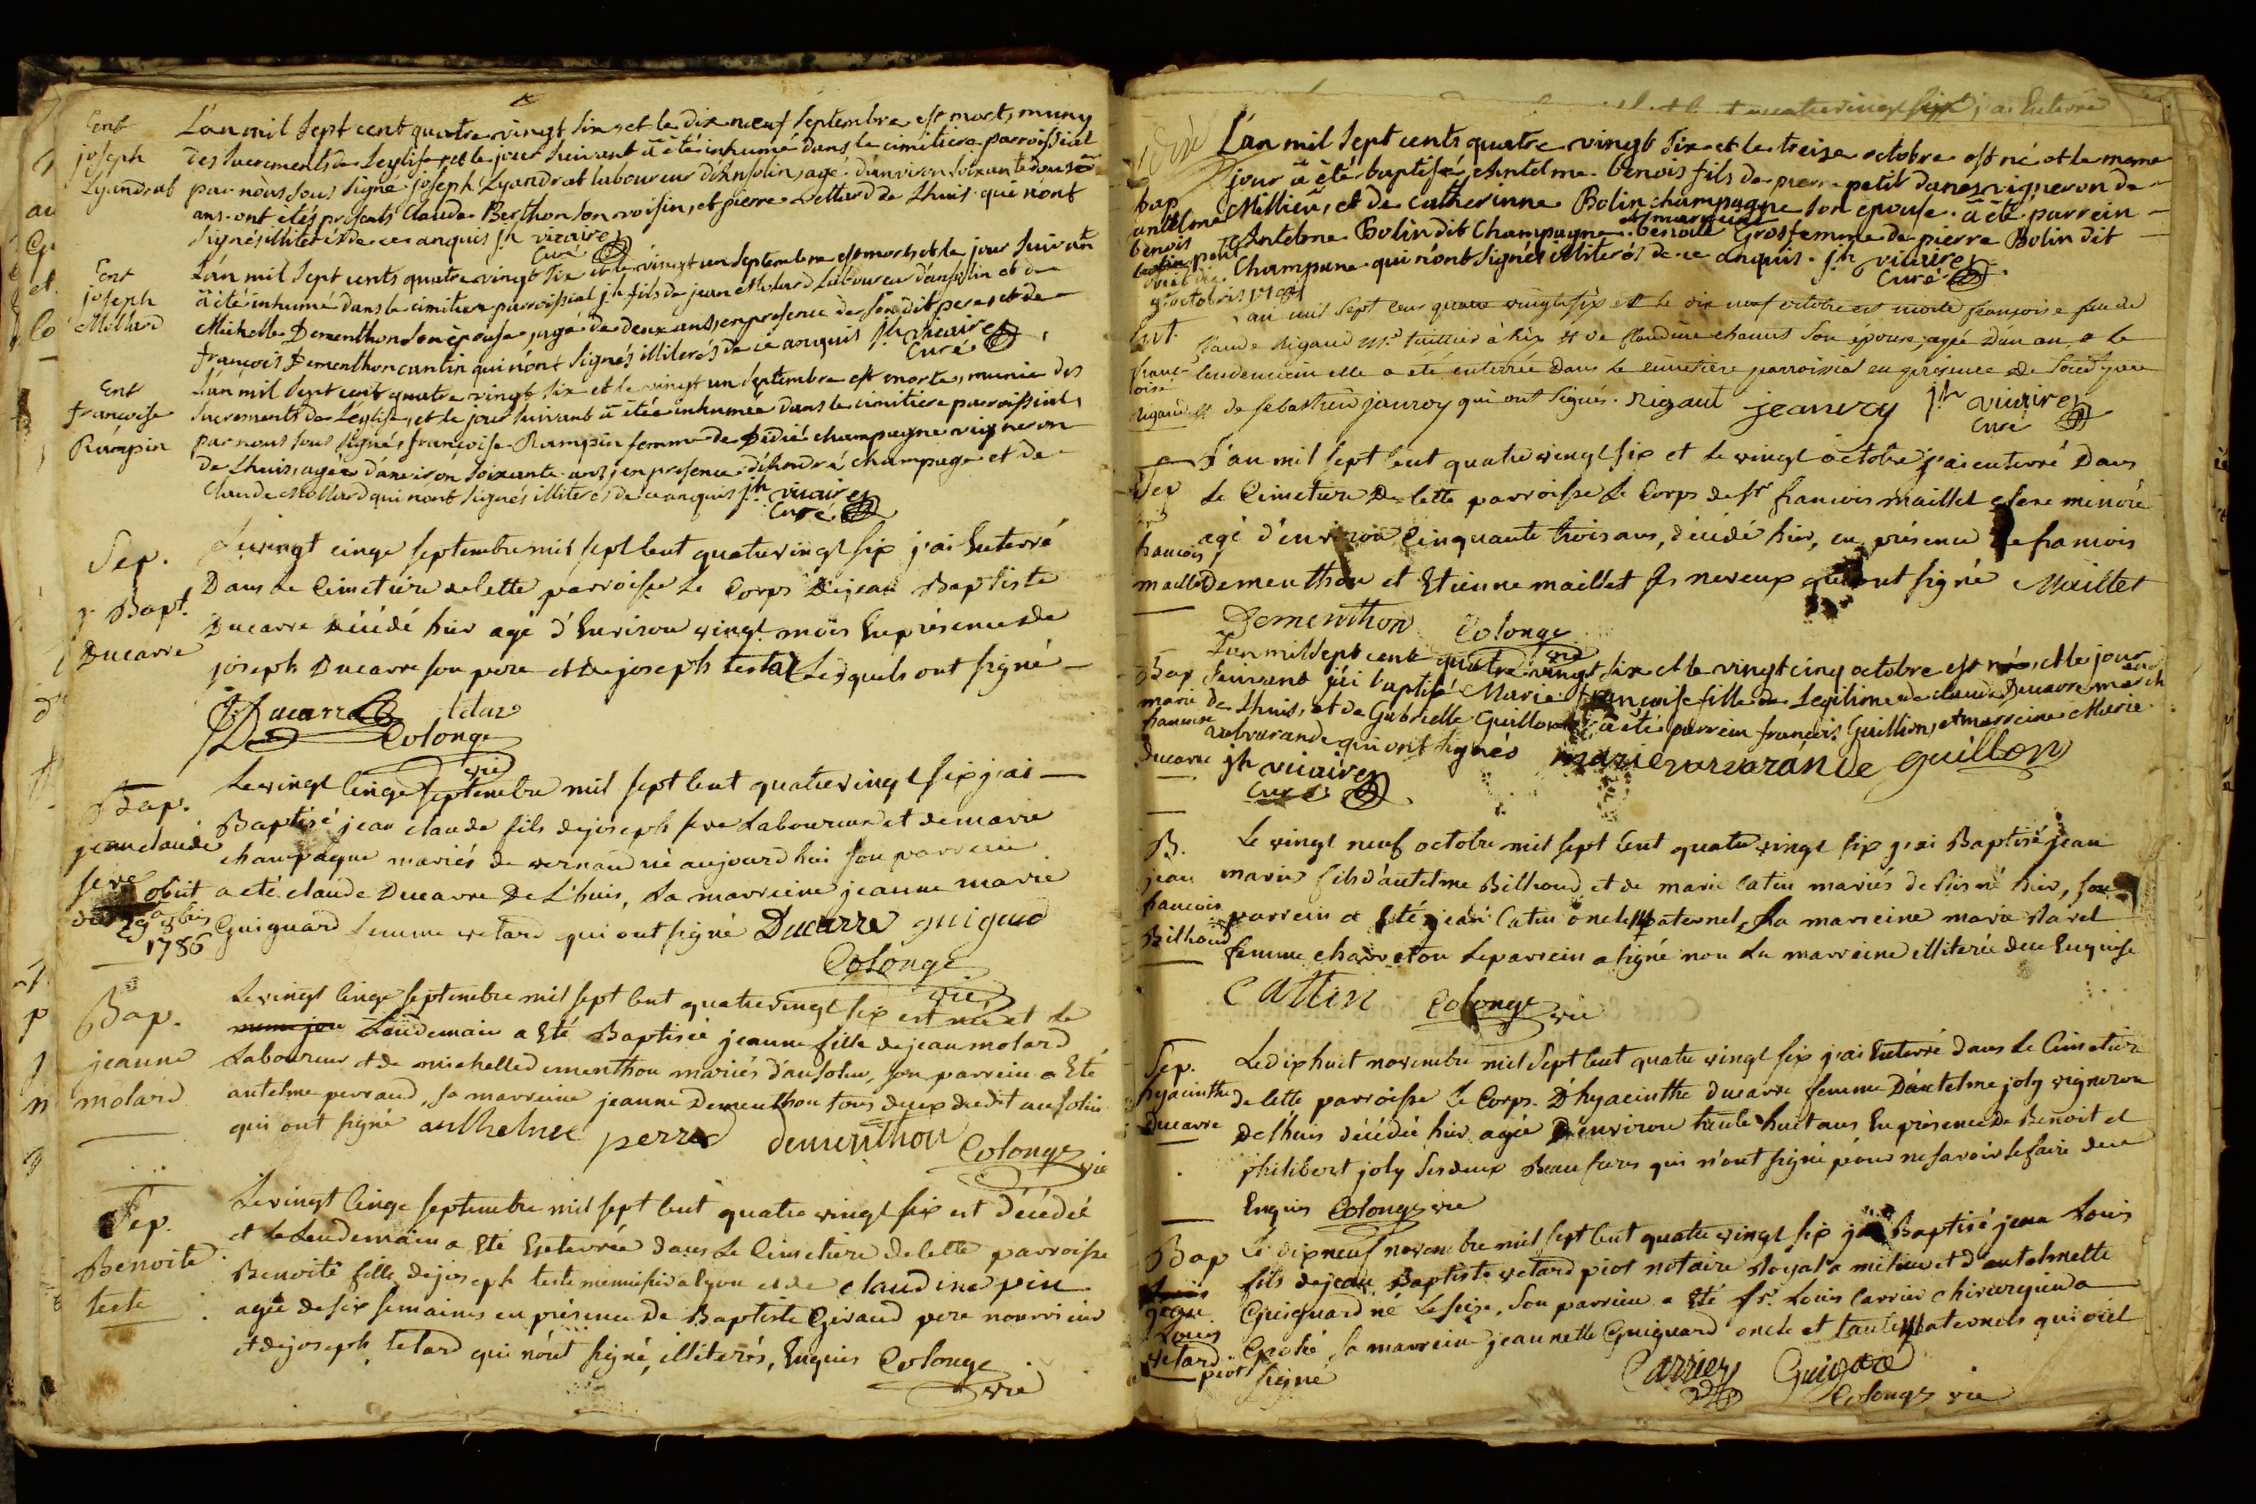 Ent
joseph
Lyandrat
L'an mil sept cent quatre vingt six et le dix neuf septembre est mort, muny
des sacrements de Leglise et le jour suivant a été inhumé dans le cimitiere parroissial
par nous sous signé joseph Lyandrat laboureur d'ansolin, agé d'environ soixante
ans. ont étés presents Claude Berthon son voisin, et pierre de Lhuis qui nont
signés illiterés de ce anquis jh vicaire
Curé
Ent
joseph
Mollard
L'an mil sept cents quatre vingt six et le vingt un septembre est mort, et le jour suivant
a été inhumé dans le cimitiere parroissial jh fils de jean Mollard Laboureur d'ansolin et de
Michelle Dementhon son épouse, agé de deux ans, en presence de son dit pere, et de
françois Dementhon cantin qui nónt signés illiterés de ce anquis jh vicaire
Curé
Ent
françoise
Rampin
L'an mil sept cent quatre vingt six et le vingt un septembre est morte, munie des
sacrements de Léglise, et le jour suivant a étée inhumée dans le cimitiere parroissial,
par nous sous signé, françoise Rampin femme de Didié champagne vigneron
de Lhuis, agée d'environ soixante ans, en presence d'Andrá champage et de
Claude Mollard qui nont signés illiterés de ce anquis jh vicaire
Curé
Sep.
j. Bapt.
Ducarre
Le vingt cinqe septembre mil sept cent quatre vingt six j'ai Enterré
Dans Le Cimetiere de Cette parroisse Le Corps De jean Baptiste
Ducarre décédé hier agé d'Environ vingt mois En présence de
joseph Ducarre son pere et de joseph tetaz Lesquels ont signé
J. Ducarre tetaz
Colonge
vic
Bap.
jean claude
seve
obiit
29 8bris
1786
Le vingt cinqe septembre mil sept cent quatre vingt six j'ai
Baptisé jean claude fils de joseph seve Laboureur et de marie
champagne mariés de vernand né aujourd'hui son parrein
a eté claude Ducarre De L'huis, La marreine jeanne marie
Guiguard femme vetard qui ont signé Ducarre guigard
Colonge
vic
Bap.
jeanne
molard
Le vingt cinqe septembre mil sept cent quatre vingt six est née et Le
meme jou Lendemain a Eté Baptisée jeanne fille de jean molard
Laboureur et de michelle dementhon mariés d'ansolin, son parrein a Eté
antelme perraud, sa marreine jeanne Dementhon tous deux dudit ansolin
qui ont signé anthelme perrod dementhon
Colonge vic
Sep.
Benoite
teste
Le vingt cinqe septembre mil sept cent quatre vingt six est décédée
et Le Lendemain a Eté Enterrée dans Le Cimetiere de Cette parroisse
Benoite fille de joseph teste menuisier a lyon et de claudine pin
agée de six semaines en présence de Baptiste Giraud pere nourricier
et de joseph tetard qui n'ont signé, illiterés, Enquis Colonge
vic
L'an mil sept cents quatre vingt six et le treize octobre est né et le meme
jour a été baptisé, Antelme Benois fils de pierre petit danes vigneron de
Millieu, et de Catherinne Bolin champagne son epouse. a été parrein
Antelme Bolin dit Champagne et marreine benoite Gros femme de pierre Bolin dit
Champane qui nónt signés illiterés de ce anquis. jh vicaire
Curé
bap
antelme
benois
petit
Ent.
fran-
coise
Rigaud
L'an mil sept cent quatre vingt six et le dix neuf octobre est morte françoise feu de
Claude Rigaud et de Claudine chanus son épouse, agée d'un an, et le
lendemain elle a été enterrée Dans le cimetiere parroissial en présence de
et de sebastien janroy qui ont signés. Rigaut jeanroy jh vicaire
Curé
Sep
françois
maillet
L'an mil sept cent quatre vingt six et le vingt octobre j'ai enterré Dans
Le Cimetiere De Cette parroisse Le Corps de Sr françois maillet clerc minoré
agé d'environ Cinquante trois ans, décédé hier, en présence De francois
Dementhon et Etienne maillet Ss neveux qui ont signé Maillet
Dementhon Colonge
vic
Bap
marie
francoise
Ducarre
L'an mil sept cent quatre vingt six et le vingt cinq octobre est née, et le jour
suivant j'ai baptisé Marie françoise fille Legitime de claude Ducarre march
de Lhuis, et de Gabrielle Guillon. a été parrein françois Guillion, et marreine Marie
varvarande qui ont signés marie varvarande guillon
jh vicaire
Curé
B.
jean
francois
Bilhoud
Le vingt neuf octobre mil sept Cent quatre vingt six j'ai Baptisé jean
marie fils d'antelme Bilhoud et de marie Catin mariés de né hier, son
parrein a Eté jean Catin oncle paternel, La marreine marie Ravel
femme charreton Le parrein a signé non La marreine illiterée de ce Enquise
Cattin Colonge vic
Sep.
hyacinthe
Ducarre
Le dix huit novembre mil Sept Cent quatre vingt six j'ai Enterré dans Le Cimetiere
de Cette parroisse Le Corps D'hyacinthe ducarre femme D'antelme joly vigneron
De Lhuis décédée hier agée D'environ trente huit ans En présence De Benoit et
philibert joly Ses deux Beau freres qui n'ont signé pour ne savoir Le faire de ce
Enquis Colonge vic
Bap
jean
Louis
vetard
piot
Le dix neuf novembre mil sept Cent quatre vingt six j'ai Baptisé jean Louis
fils de jean Baptiste vetard piot notaire Royal a milieu et d'antelmette
Guiguard né Le seize, Son parrein a Eté Sr. Louis Carrier chirurgien a
Groslé sa marreine jeannette Guiguard oncle et tante paternels qui ont
signé
Carrier Guigard
Colonge vic